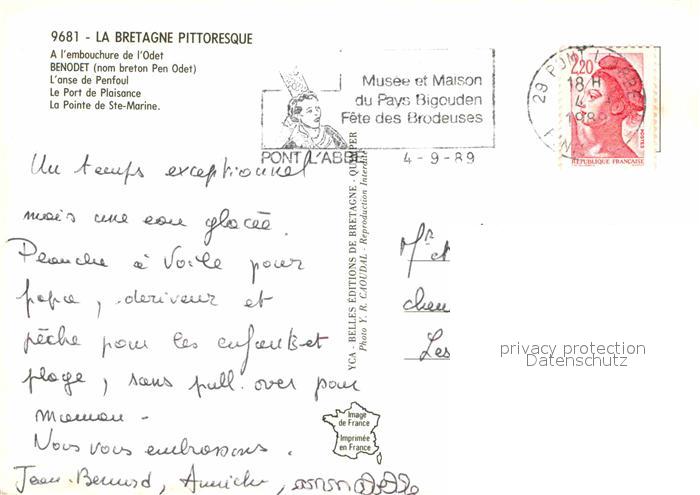 9681 - LA BRETAGNE PITTORESQUE
A l'embouchure de l'Odet
BENODET (nom breton Pen Odet)
L'anse de Penfoul
Le Port de Plaisance
La Pointe de Ste-Marine.
Musée et Maison
du Pays Bigouden
Fête des Brodeuses
PONT L'ABBE
4-9-89
29 PONT L'ABBE
18 H
4 - 9
1989
2,20
POSTES
REPUBLIQUE FRANÇAISE
Un temps exceptionnel
mais une eau glacée.
Planche à Voile pour
papa, deriveur et
pêche pour les enfants et
plage, sans pull. over pour
maman -
Nous vous embrassons.
Jean-Bernard, Annick,
YCA - BELLES ÉDITIONS DE BRETAGNE - QUIMPER
Photo Y. R. CAOUDAL - Reproduction Interdite
Mr et
chem
Les
privacy protection
Datenschutz
Image
de France
Imprimée
en France